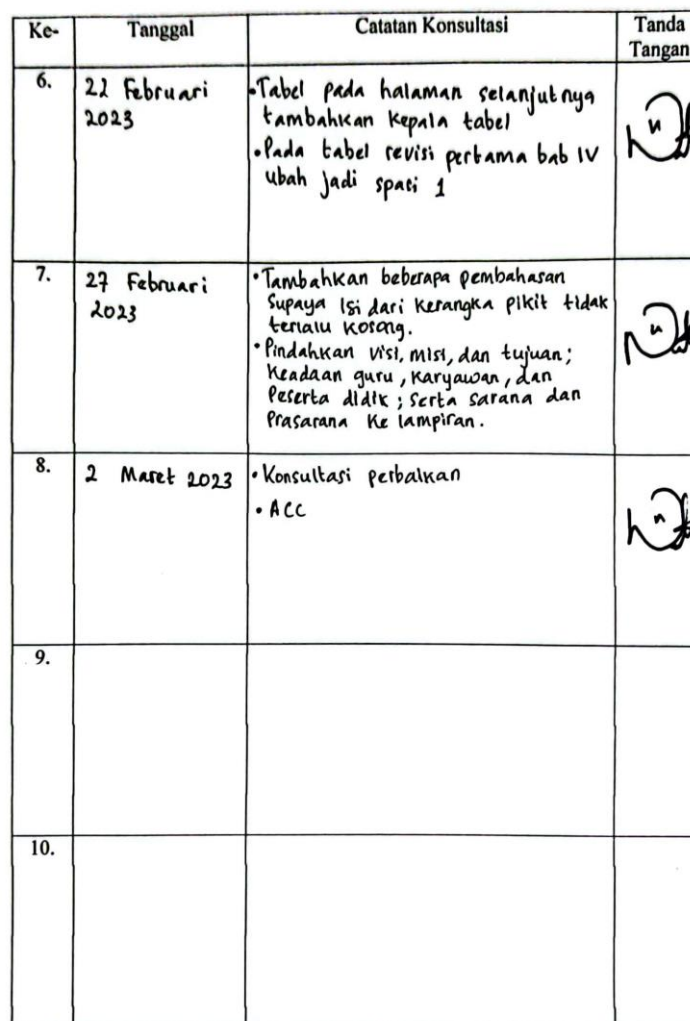 Ke- Tanggal Catatan Konsultasi Tanda
Tangan
6. 22 Februari •Tabel pada halaman selanjutnya
2023 tambahkan Kepala tabel
•Pada tabel revisi pertama bab IV
ubah jadi spasi 1
7. 27 Februari •Tambahkan beberapa pembahasan
2023 supaya isi dari kerangka pikit tidak
terlalu kosong.
•Pindahkan visi, misi, dan tujuan;
Keadaan guru, karyawan, dan
Peserta didik; serta sarana dan
Prasarana Ke lampiran.
8. 2 Maret 2023 •Konsultasi perbaikan
•ACC
9.
10.